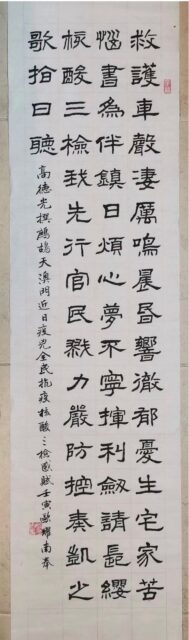 救護車聲淒厲鳴晨昏響徹郁憂生宅家苦
惱書為伴鎮日煩心夢不寧揮利劍請長纓
核酸三檢我先行官民戮力嚴防控奏凱之
歌指日聽
高德光撰鷓鴣天澳門近日疫況全民抗疫核酸三檢感賦壬寅歐耀南奉